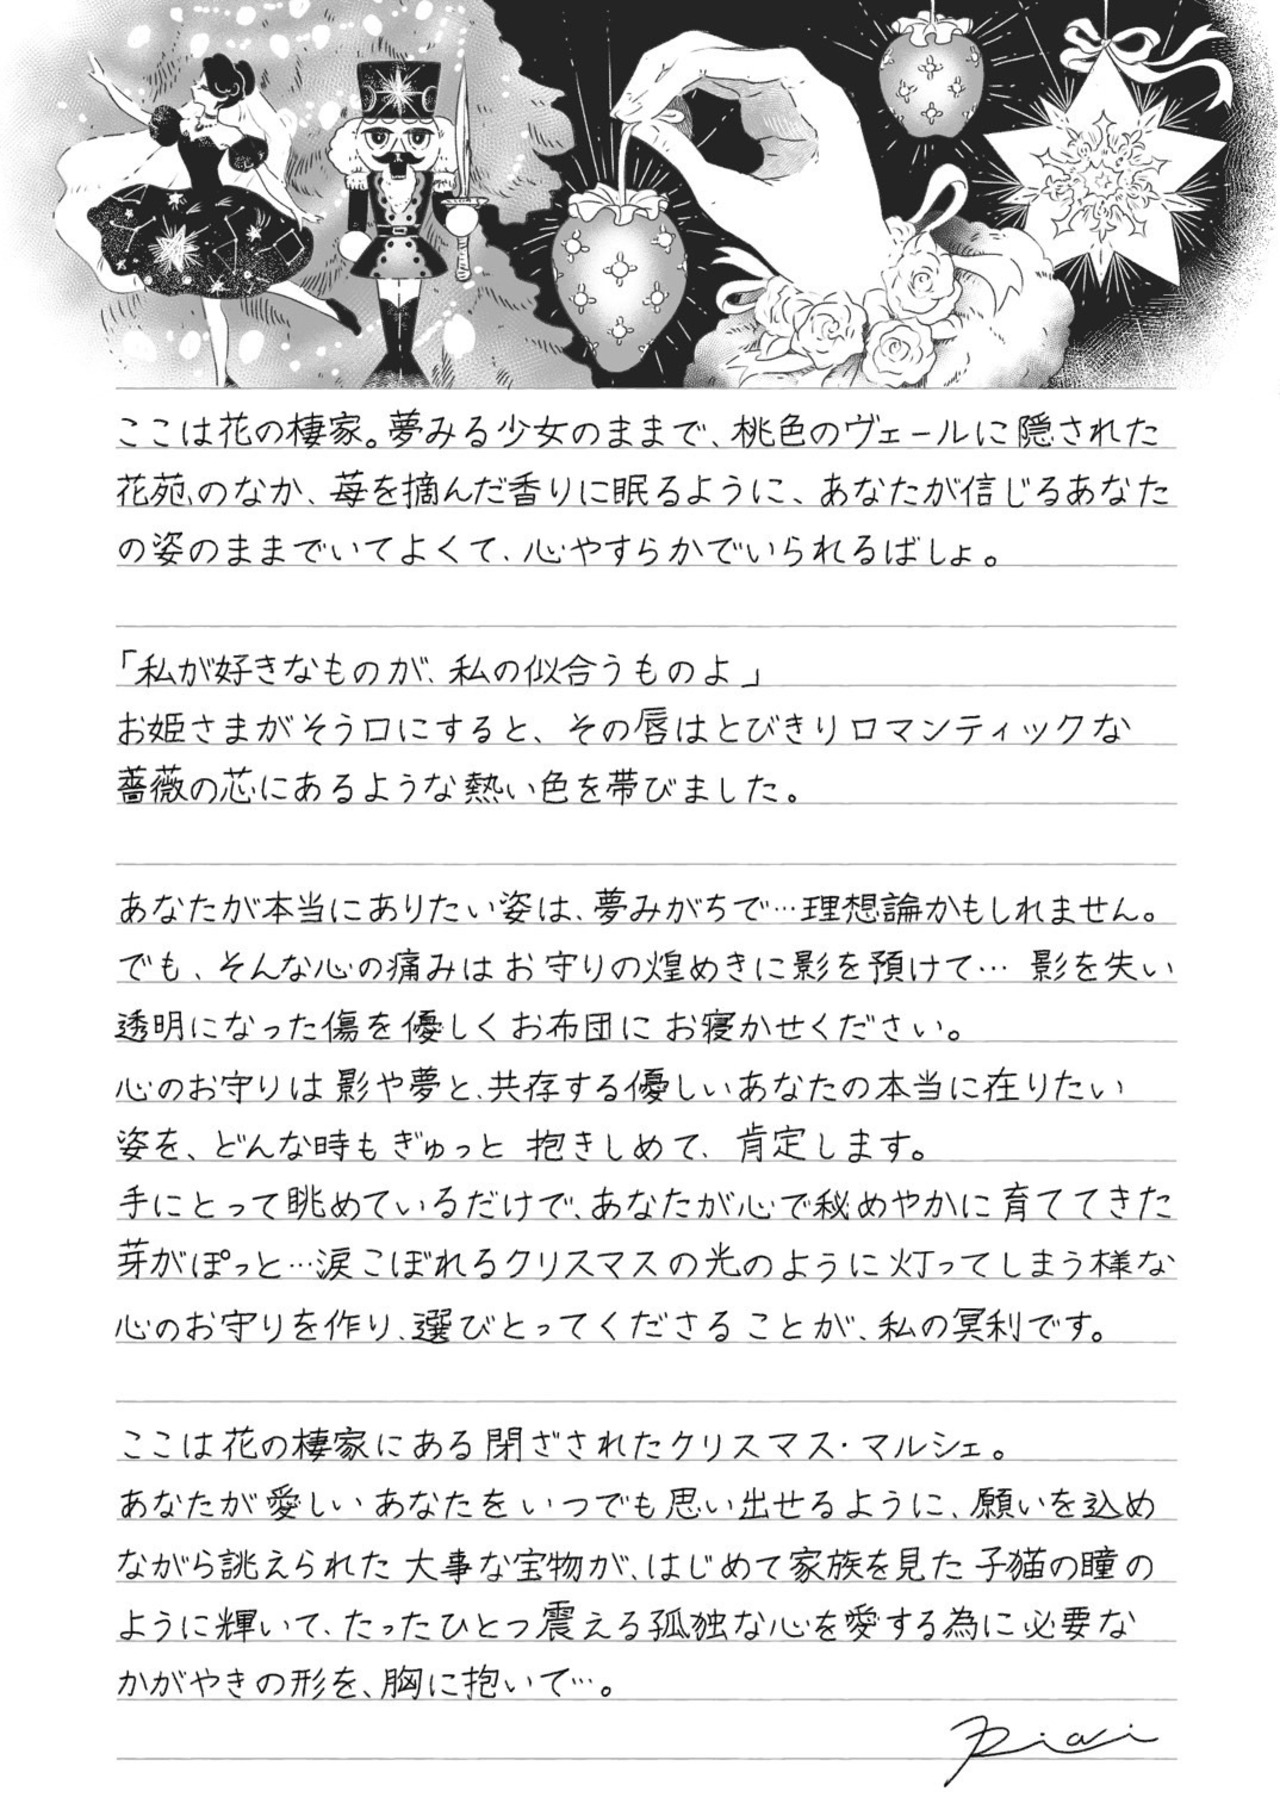 ここは花の棲家。夢みる少女のままで、桃色のヴェールに隠された
花苑のなか、苺を摘んだ香りに眠るように、あなたが信じるあなた
の姿のままでいてよくて、心やすらかでいられるばしょ。
「私が好きなものが、私の似合うものよ」
お姫さまがそう口にすると、その唇はとびきりロマンティックな
薔薇の芯にあるような熱い色を帯びました。
あなたが本当にありたい姿は、夢みがちで…理想論かもしれません。
でも、そんな心の痛みはお守りの煌めきに影を預けて… 影を失い
透明になった傷を優しくお布団にお寝かせください。
心のお守りは影や夢と、共存する優しいあなたの本当に在りたい
姿を、どんな時もぎゅっと抱きしめて、肯定します。
手にとって眺めているだけで、あなたが心で秘めやかに育ててきた
芽がぽっと…涙こぼれるクリスマスの光のように灯ってしまう様な
心のお守りを作り、選びとってくださることが、私の冥利です。
ここは花の棲家にある閉ざされたクリスマス・マルシェ。
あなたが愛しいあなたをいつでも思い出せるように、願いを込め
ながら誂えられた大事な宝物が、はじめて家族を見た子猫の瞳の
ように輝いて、たったひとつ震える孤独な心を愛する為に必要な
かがやきの形を、胸に抱いて…。